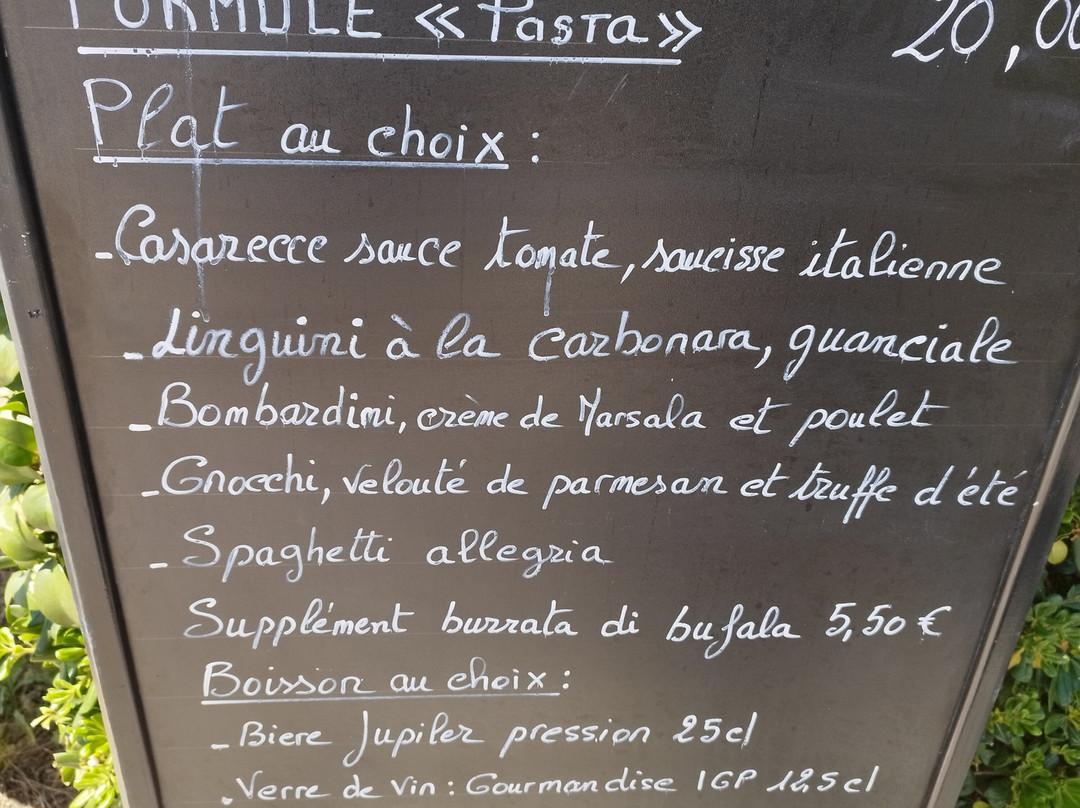 FORMULE « Pasta » 20,00
Plat au choix :
- Casarecce sauce tomate, saucisse italienne
- Linguini à la carbonara, guanciale
- Bombardini, crème de Marsala et poulet
- Gnocchi, velouté de parmesan et truffe d'été.
- Spaghetti allegria
Supplément burrata di bufala 5,50 €
Boisson au choix :
- Biere Jupiler pression 25cl
- Verre de Vin : Gourmandise IGP 12,5cl